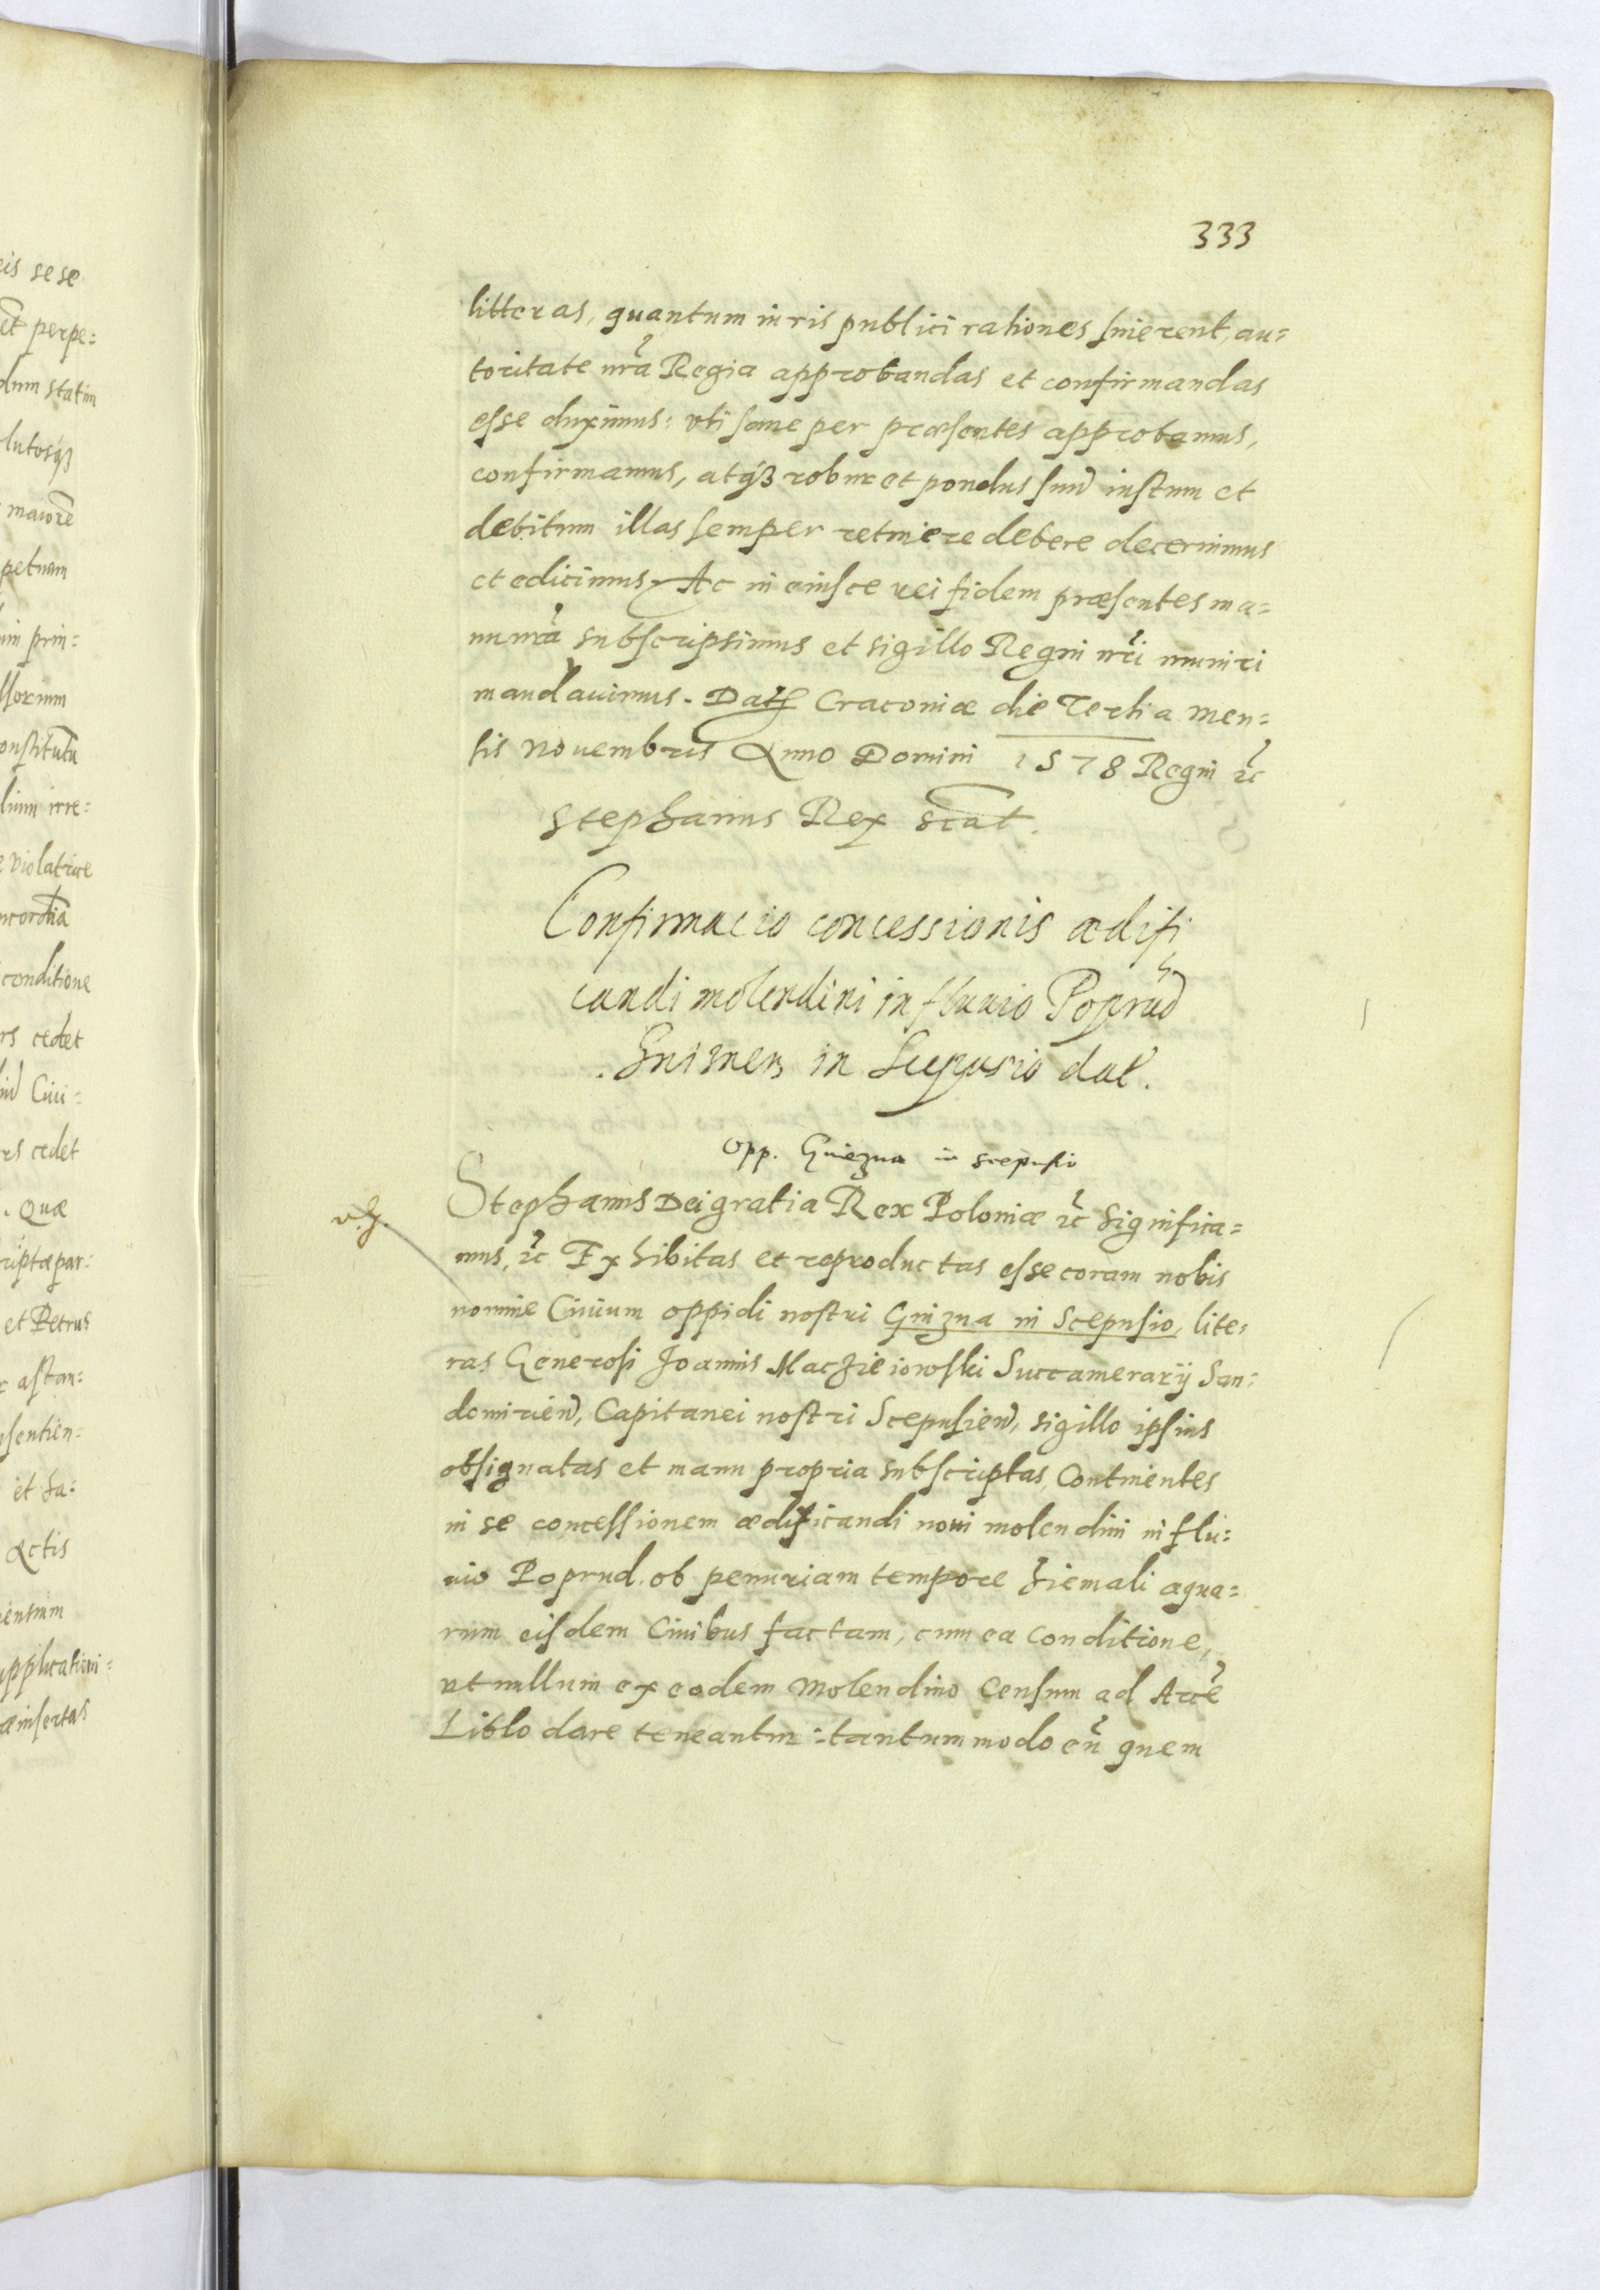 333
litteras, quantum iuris publici rationes sinerent, au=
toritate nrã Regia approbandas et confirmandas
esse duximus: vti sane per præsentes approbamus,
confirmamus, atqꝫ robur et pondus suũ iustum et
debitum illas semper retinere debere decernimus
et edicimus. Ac in eiusce rei fidem præsentes ma=
nu nrã subscripsimus et sigillo Regni nrĩ muniri
mandauimus. Datꝭ Craconiæ die Tertia men=
sis Nouembris Anno Domini 1578 Regni ꝛc̃
Stephanus Rex scãt.
Confirmacio concessionis ædifi
candi molendini in fluuio Poprud
in Scepusio dat.
Opp. Gniezna in scepusio
Stephanus Dei gratia Rex Poloniæ ꝛc̃ Significa=
mus, ꝛc̃ Exhibitas et reproductas esse coram nobis
nomine Ciuium oppidi nostri Gnizna in Scepusio, lite=
ras Generosi Joannis Maczieiowski Succamerarÿ San=
domirieñ, Capitanei nostri Scepusieñ, sigillo ipsius
obsignatas et manu propria subscriptas, Continentes
in se concessionem ædificandi noui molendini in flu=
uio Poprud, ob penuriam tempore hiemali aqua=
rum eisdem Ciuibus factam, cum ea Conditione,
vt nullum ex eodem Molendino Censum ad Arcẽ
Liblo dare teneantur: tantummodo eũ quem
eis sese
et perpe:
dum statim
maiorẽ
petuam
prin:
irre:
violatrice
conditione
cedet
Ciui=
cedet
. Quæ
et Petrus
astan:
et ha:
Actis